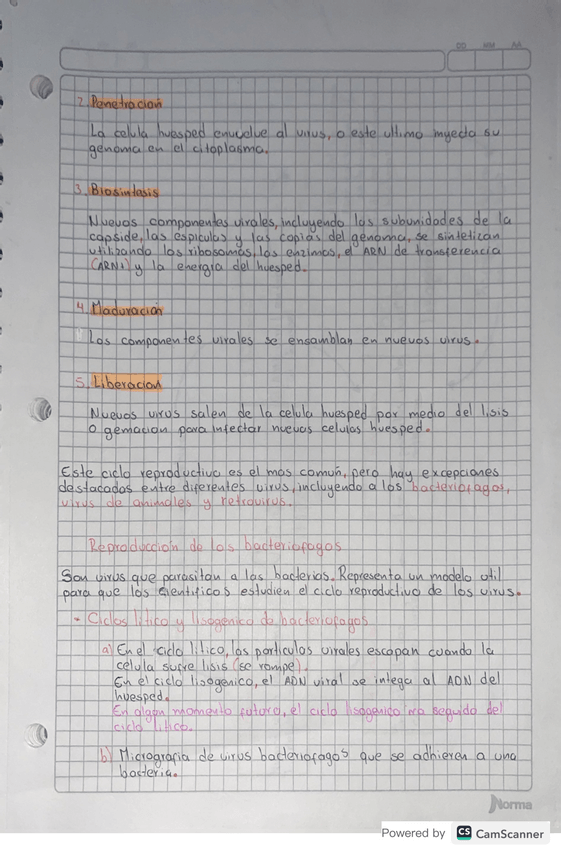 DD MM AA
2. Penetracion
La celula huesped envuelve al virus, o este ultimo inyecta su
genoma en el citoplasma.
3. Biosintesis
Nuevos componentes virales, incluyendo las subunidades de la
capside, las espiculas y las copias del genoma, se sintetizan
utilizando los ribosomas, las enzimas, el ARN de transferencia
(ARNt) y la energia del huesped.
4. Maduracion
Los componentes virales se ensamblan en nuevos virus.
5. Liberacion
Nuevos virus salen de la celula huesped por medio del lisis
o gemacion para infectar nuevas celulas huesped.
Este ciclo reproductivo es el mas comun, pero hay excepciones
destacadas entre diferentes virus, incluyendo a los bacteriofagos,
virus de animales y retrovirus.
Reproduccion de los bacteriofagos
Son virus que parasitan a las bacterias. Representa un modelo util
para que los cientificos estudien el ciclo reproductivo de los virus.
• Ciclos litico y lisogenico de bacteriofagos
a) En el ciclo litico, las particulas virales escapan cuando la
celula sufre lisis (se rompe).
En el ciclo lisogenico, el ADN viral se intega al ADN del
huesped.
En algun momento futuro, el ciclo lisogenico va seguido del
ciclo litico.
b) Micrografia de virus bacteriofagos que se adhieren a una
bacteria.
Norma
Powered by CS CamScanner